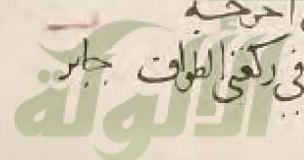 اخرجه
في ركعتي الطواف جابر
الألوكة